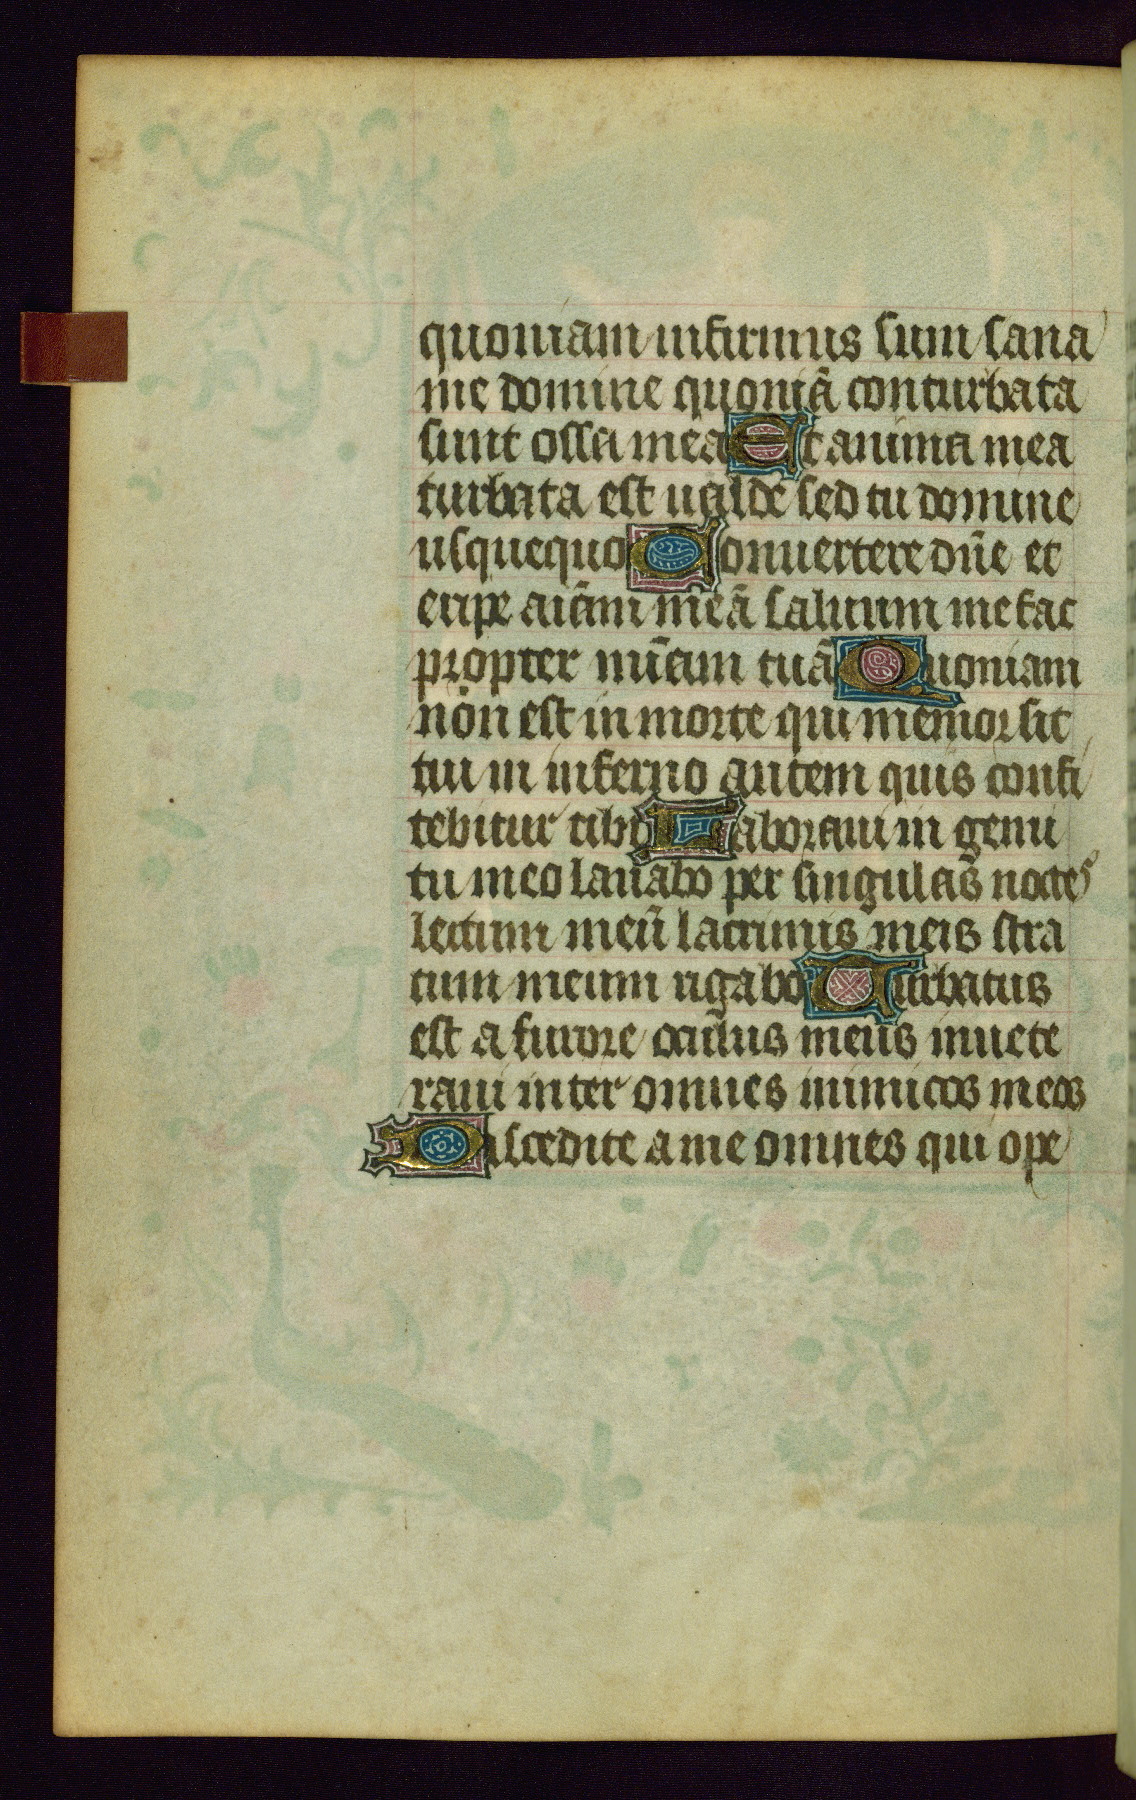 quoniam infirmus sum sana
me domine quoniā conturbata
sunt ossa mea Et anima mea
turbata est ualde sed tu domine
usquequo Conuertere dn̄e et
eripe aīam meā saluum me fac
propter mīam tuā Quoniam
non est in morte qui memor sit
tui in inferno autem quis confi
tebitur tibi Laboraui in gemi
tu meo lauabo per singulas noctes
lectum meū lacrimis meis stra
tum meum rigabo Turbatus
est a furore oculus meus inuete
raui inter omnes inimicos meos
Discedite a me omnes qui ope